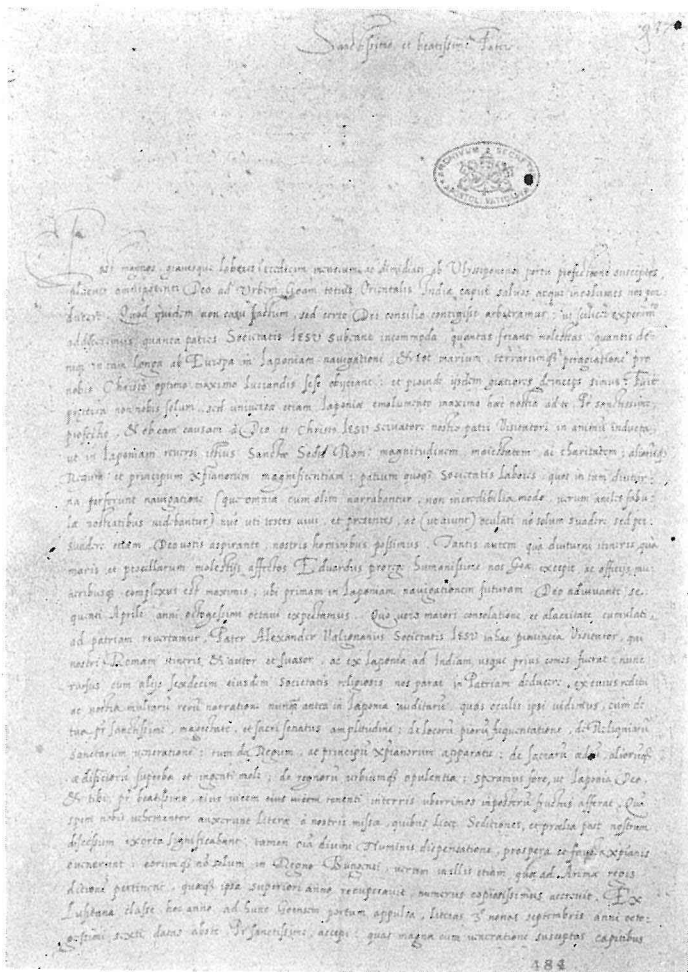 Sanctissime et beatissime Pater
ARCHIVUM SECRETUM APOSTOL. VATICANUM
Post magnos, gravesque labores sexdecim mensium, ac dimidiati ab Ulyssiponensi portu profectione susceptos,
placuit omnipotenti Deo ad Urbem Goam totius Orientalis Indiae caput salvos atque incolumes nos per-
ducere. Quod quidem non casu factum, sed certo Dei consilio contigisse arbitramur: ut scilicet experim
addisceremus, quanta patres Societatis IESV subeant incommoda, quantas ferant molestias, quantis de-
niq in tam longa ab Europa in Iaponiam navigatione, & tot marium, terrarumq peragratione pro
nobis Christo optimo maximo lucrandis sese obijciant: et proinde ijsdem gratiores deinceps simus. Fuit
praeterea non nobis solum, sed universae etiam Iaponiae emolumento maximo haec nostra ad te Pr sanctissime,
profectio, & ob eam causam à Deo et Christo IESV servatore nostro patri Visitatori in animum inducta,
ut in Iaponiam reversi istius Sanctae Sedis Rom. magnitudinem, maiestatem, ac charitatem; aliorumq
Regum et principum xpianorum magnificentiam; patrum quoq Societatis labores, quos in tam diutur-
na perferunt navigatione (quae omnia cum olim narrabantur, non incredibilia modo, verum aniles fabu-
lae nostratibus videbantur) nunc uti testes vivi, et praesentes, ac (ut aiunt) oculati non solum suadere sed per-
suadere etiam, Deo votis aspirante, nostris hominibus possimus. Tantis autem qua diuturni itineris, qua
maris et procellarum molestijs affectos Eduardus prorex humanissime nos Goae excepit, ac officijs mu-
neribusq complexus est maximis, ubi primam in Iaponiam navigationem futuram Deo adiuvante se-
quenti Aprili anni octogesimi octavi expectamus. Quo vero maiori consolatione et alacritate cumulati,
ad patriam revertamur, Pater Alexander Valignanus Societatis IESV in hac provincia Visitator, qui
nostri Romam itineris, & autor et suasor, ac ex Iaponia ad Indiam usque prius comes fuerat: nunc
rursus cum alijs sexdecim eiusdem Societatis religiosis nos parat in Patriam deducere, ex cuius reditu
ac nostra multarum rerum narratione nunquam antea in Iaponia auditarum, quas oculis ipsi vidimus, cum de
tua, Pr sanctissime, maiestate, et sacri senatus amplitudine; de locorum piorum frequentatione, de Religiosarum
sanctarum veneratione; tum de Regum, ac principum xpianorum apparatu; de sacrarum aedium, aliorumq
aedificiorum superba et ingenti mole; de regnorum urbiumq opulentia; speramus fore, ut Iaponia Deo,
& tibi, pr beatissime, eius vicem tenenti in terris uberrimos in posterum fructus afferat. Quam
spem nobis vehementer auxerunt literae à nostris missae, quibus licet Seditiones, et praelia post nostrum
discessum exorta significabant: tamen omnia divini Numinis dispensatione, prospera et xpianis
evenerunt: eorumq non solum in Regno Bungensi, verum in illis etiam quae ad Arimae regis
ditionem pertinent, quaeq ipse superiori anno recuperavit, numerus copiosissimus accrevit. Ex
Lusitana classe hoc anno, ad hunc Goensem portum appulsa, literas nonas septembris anni octo-
gesimi sexti datas abs te, Pr sanctissime, accepi: quas magna cum veneratione susceptas capitibus
484